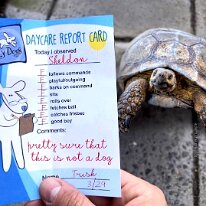 Dogs
DAYCARE REPORT CARD
Today I observed
Sheldon
F follows commands
F playful/outgoing
F barks on command
F sits
F rolls over
F fetches ball
F catches frisbee
F good boy
Comments:
pretty sure that
this is not a dog
Name Trish
3/29